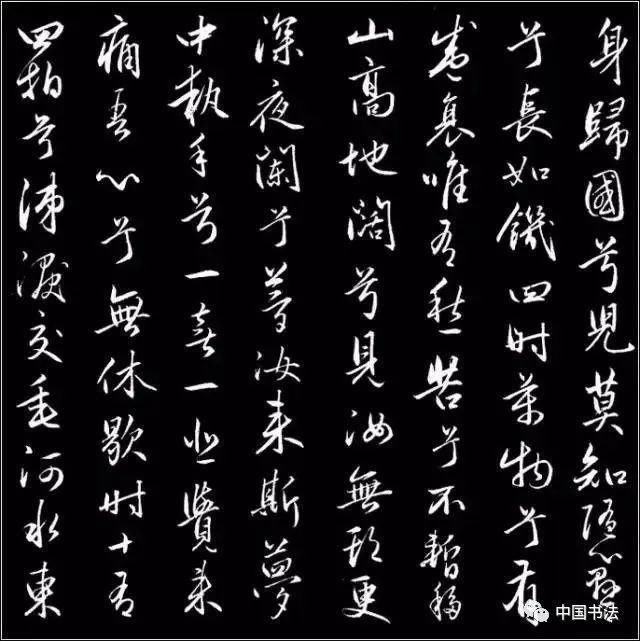 身歸國兮兒莫知隨心懸〻
兮長如饑四时萬物兮有
盛衰唯有愁苦兮不暫移
山高地闊兮見汝無期更
深夜闌兮夢汝来斯夢
中執手兮一喜一悲覺来
痛吾心兮無休歇时十有
四拍兮涕淚交垂河水東
中国书法